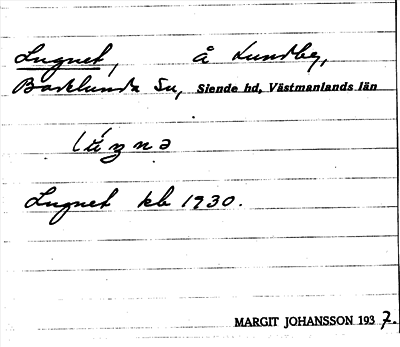 Lugnet, å Lundby,
Barklunda Sn, Siende hd, Västmanlands län
Lugnet kb 1930.
MARGIT JOHANSSON 1937.